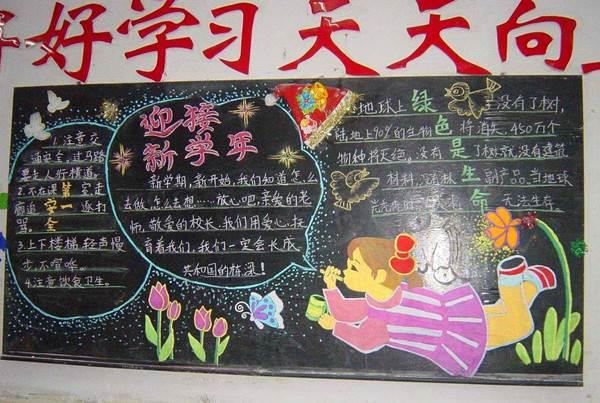 好学习天天向
1.注意交
通安全,过马路
要走人行横道。
2.不在课 室走
廊追 安一 逐打
骂。 全
3.上下楼梯,轻声慢
步,不喧哗。
4.注意饮食卫生。
迎接
新学年
新学期,新开始,我们知道怎么
去做,怎么去想……放心吧,亲爱的老
师,敬爱的校长,我们用爱心,抚
育着我们,我们一定会长成
共和国的!
地球上 绿 没有了树,
陆地上90%的生物 色 将消失,450万个
物种将灭绝。没有 是 了树就没有建筑
材料,森林 生 副产品。当地球
命 无法生存